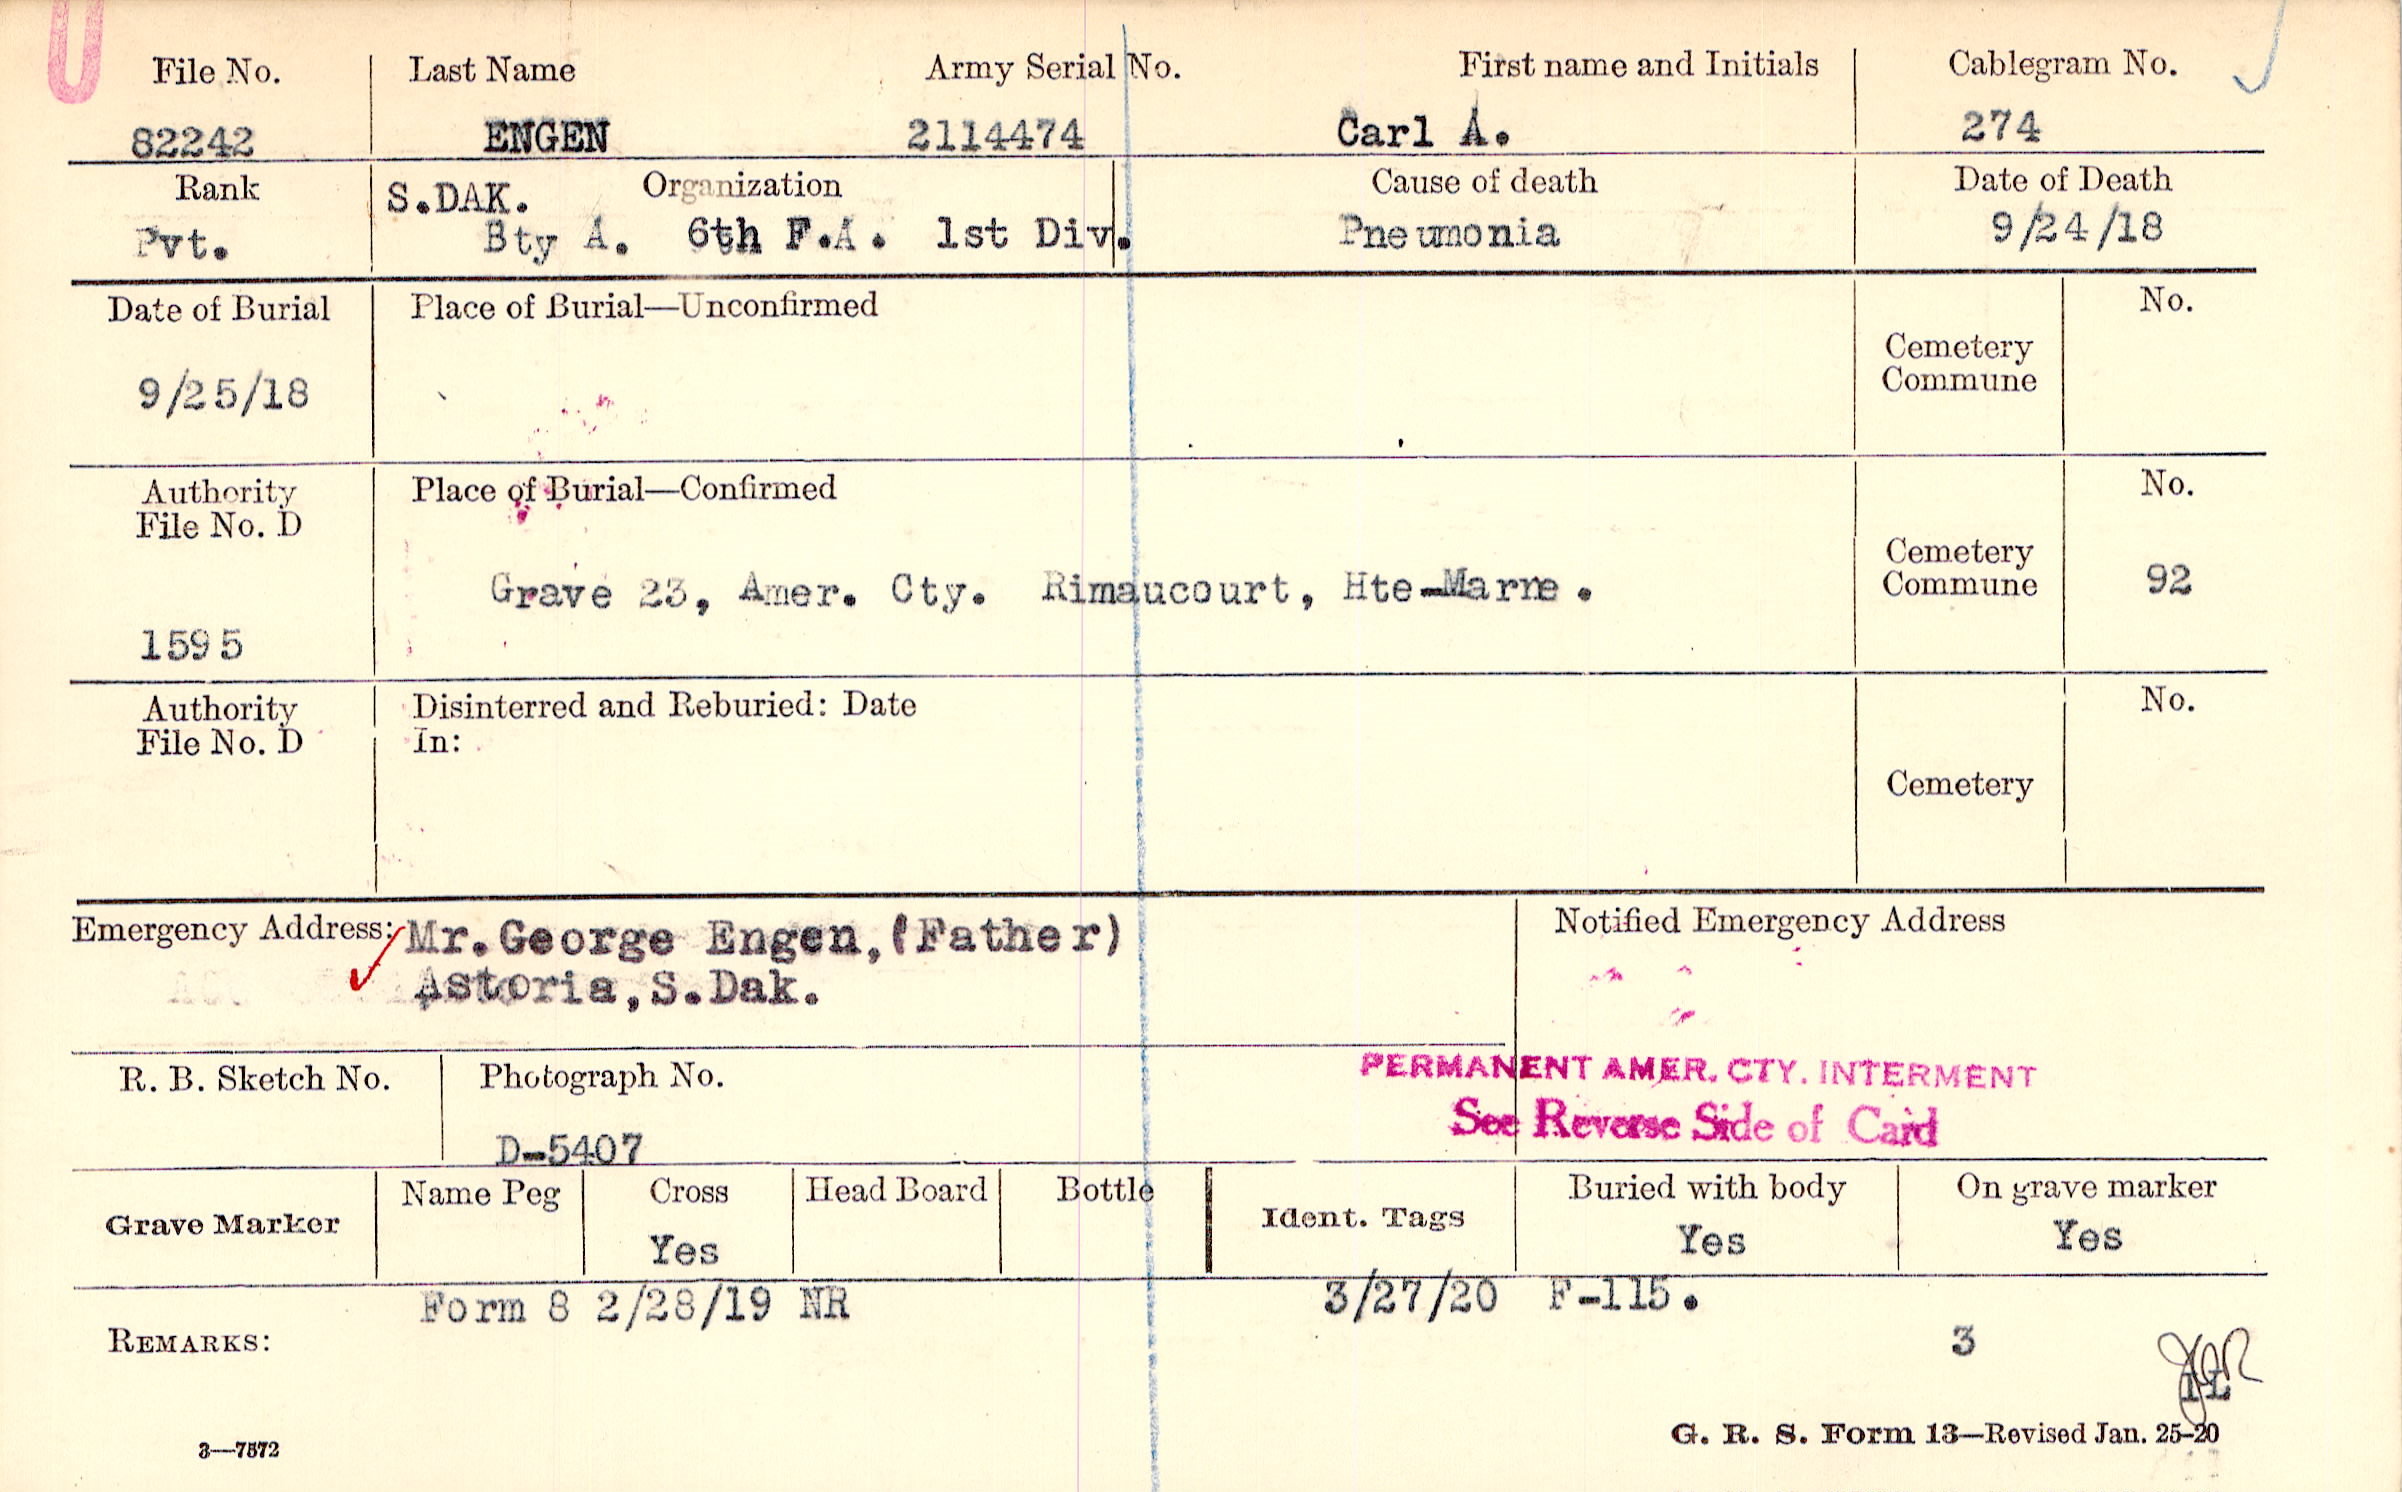 File No. Last Name Army Serial No. First name and Initials Cablegram No.
82242 ENGEN 2114474 Carl A. 274
Rank S.DAK. Organization Cause of death Date of Death
Pvt. Bty A. 6th F.A. 1st Div. Pneumonia 9/24/18
Date of Burial Place of Burial—Unconfirmed No.
Cemetery
Commune
9/25/18
Authority Place of Burial—Confirmed No.
File No. D
Cemetery
Grave 23, Amer. Cty. Rimaucourt, Hte-Marne. Commune 92
1595
Authority Disinterred and Reburied: Date No.
File No. D In:
Cemetery
Emergency Address: Mr.George Engen,(Father) Notified Emergency Address
Astoria,S.Dak.
R. B. Sketch No. Photograph No. PERMANENT AMER. CTY. INTERMENT
See Reverse Side of Card
D-5407
Grave Marker Name Peg Cross Head Board Bottle Ident. Tags Buried with body On grave marker
Yes Yes Yes
Form 8 2/28/19 NR 3/27/20 F-115.
REMARKS: 3
IL
3—7572 G. R. S. Form 13—Revised Jan. 25-20